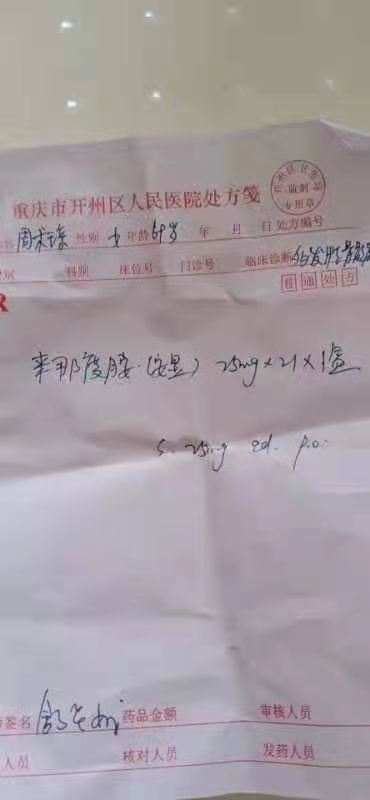 重庆市开州区人民医院处方笺
监制
专用章
性别 女 年龄 69岁 年 月 日 处方编号
科别 床位号 门诊号 临床诊断
普通处方
R
来那度胺 25mg×21×1盒
S. 25mg qd. p.o.
签名 药品金额 审核人员
人员 核对人员 发药人员